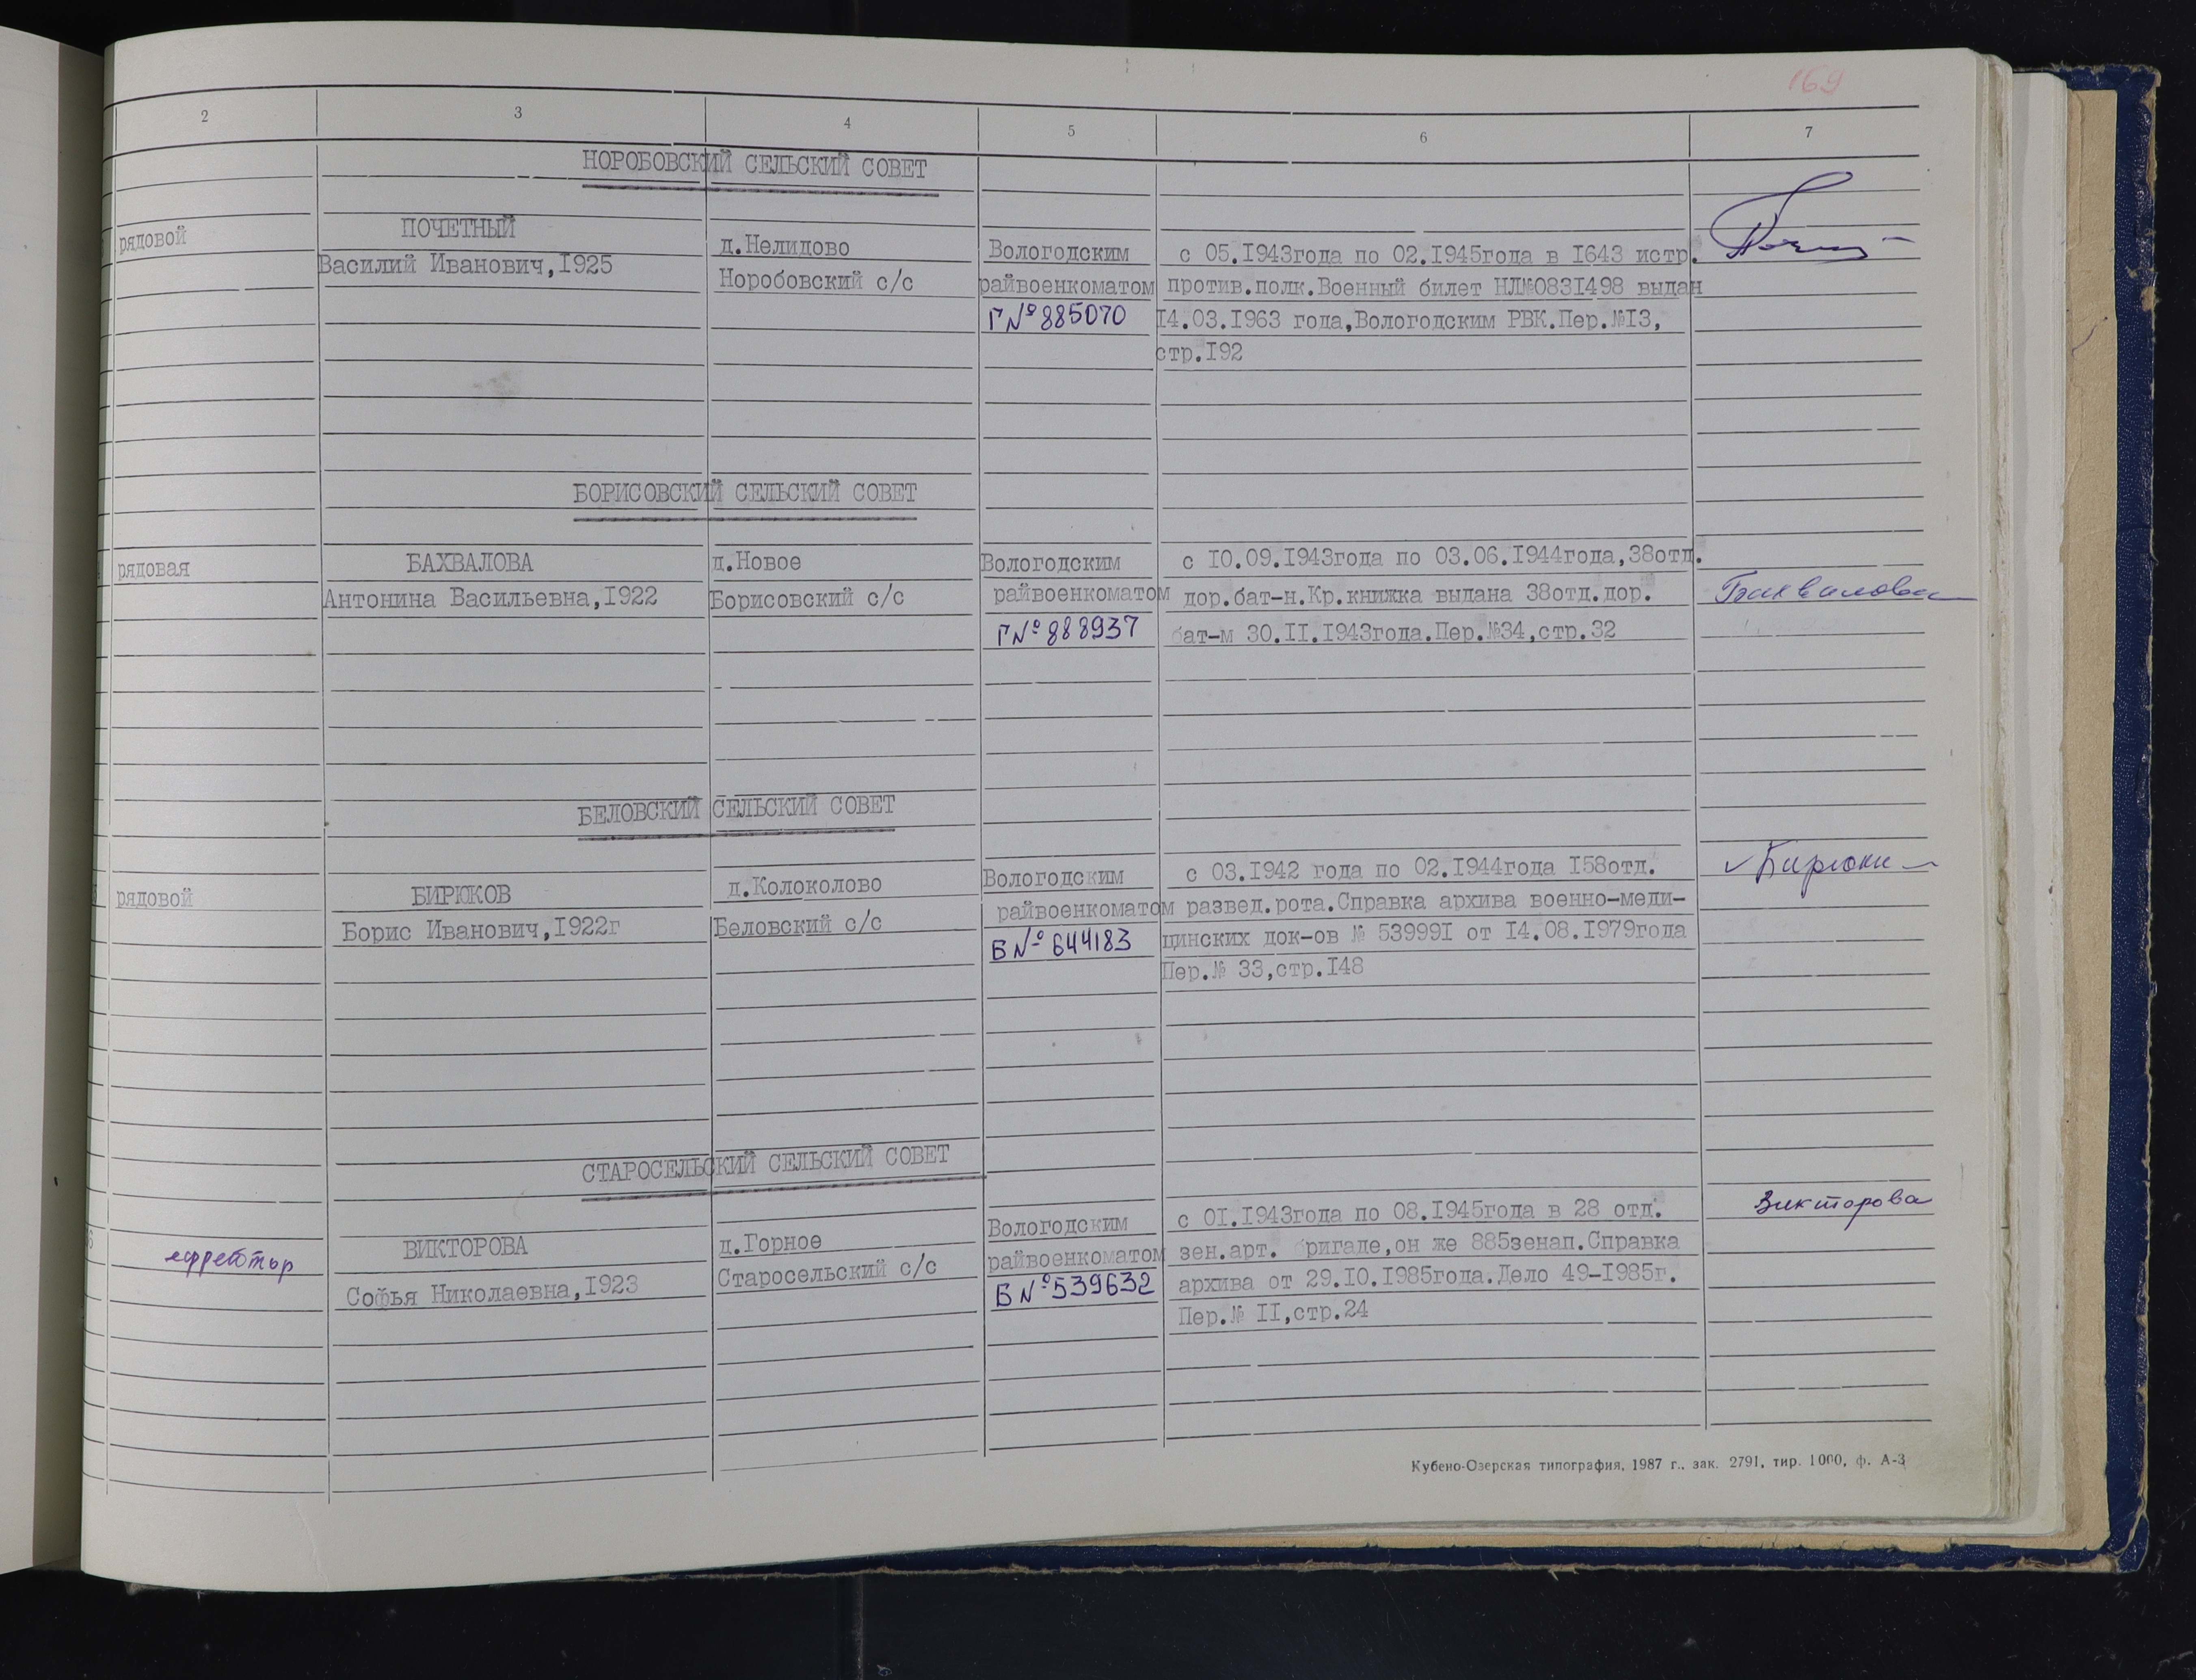 169
2 3 4 5 6 7
НОРОБОВСКИЙ СЕЛЬСКИЙ СОВЕТ
рядовой
ПОЧЕТНЫЙ
Василий Иванович,I925
д.Нелидово
Норобовский с/с
Вологодским
райвоенкоматом
Г№885070
с 05.I943года по 02.I945года в I643 истр.
против.полк.Военный билет НЛ№083I498 выдан
I4.03.I963 года,Вологодским РВК.Пер.№I3,
стр.I92
БОРИСОВСКИЙ СЕЛЬСКИЙ СОВЕТ
рядовая
БАХВАЛОВА
Антонина Васильевна,I922
д.Новое
Борисовский с/с
Вологодским
райвоенкоматом
Г№888937
с I0.09.I943года по 03.06.I944года,38отд.
дор.бат-н.Кр.книжка выдана 38отд.дор.
бат-м 30.II.I943года.Пер.№34,стр.32
Бахвалова
БЕЛОВСКИЙ СЕЛЬСКИЙ СОВЕТ
рядовой
БИРЮКОВ
Борис Иванович,I922г
д.Колоколово
Беловский с/с
Вологодским
райвоенкоматом
Б№644183
с 03.I942 года по 02.I944года I58отд.
развед.рота.Справка архива военно-меди-
цинских док-ов № 53999I от I4.08.I979года
Пер.№ 33,стр.I48
СТАРОСЕЛЬСКИЙ СЕЛЬСКИЙ СОВЕТ
ВИКТОРОВА
Софья Николаевна,I923
д.Горное
Старосельский с/с
Вологодским
райвоенкоматом
Б№539632
с 0I.I943года по 08.I945года в 28 отд.
зен.арт. бригаде,он же 885зенап.Справка
архива от 29.I0.I985года.Дело 49-I985г.
Пер.№ II,стр.24
Викторова
Кубено-Озерская типография, 1987 г., зак. 2791, тир. 1000, ф. А-3